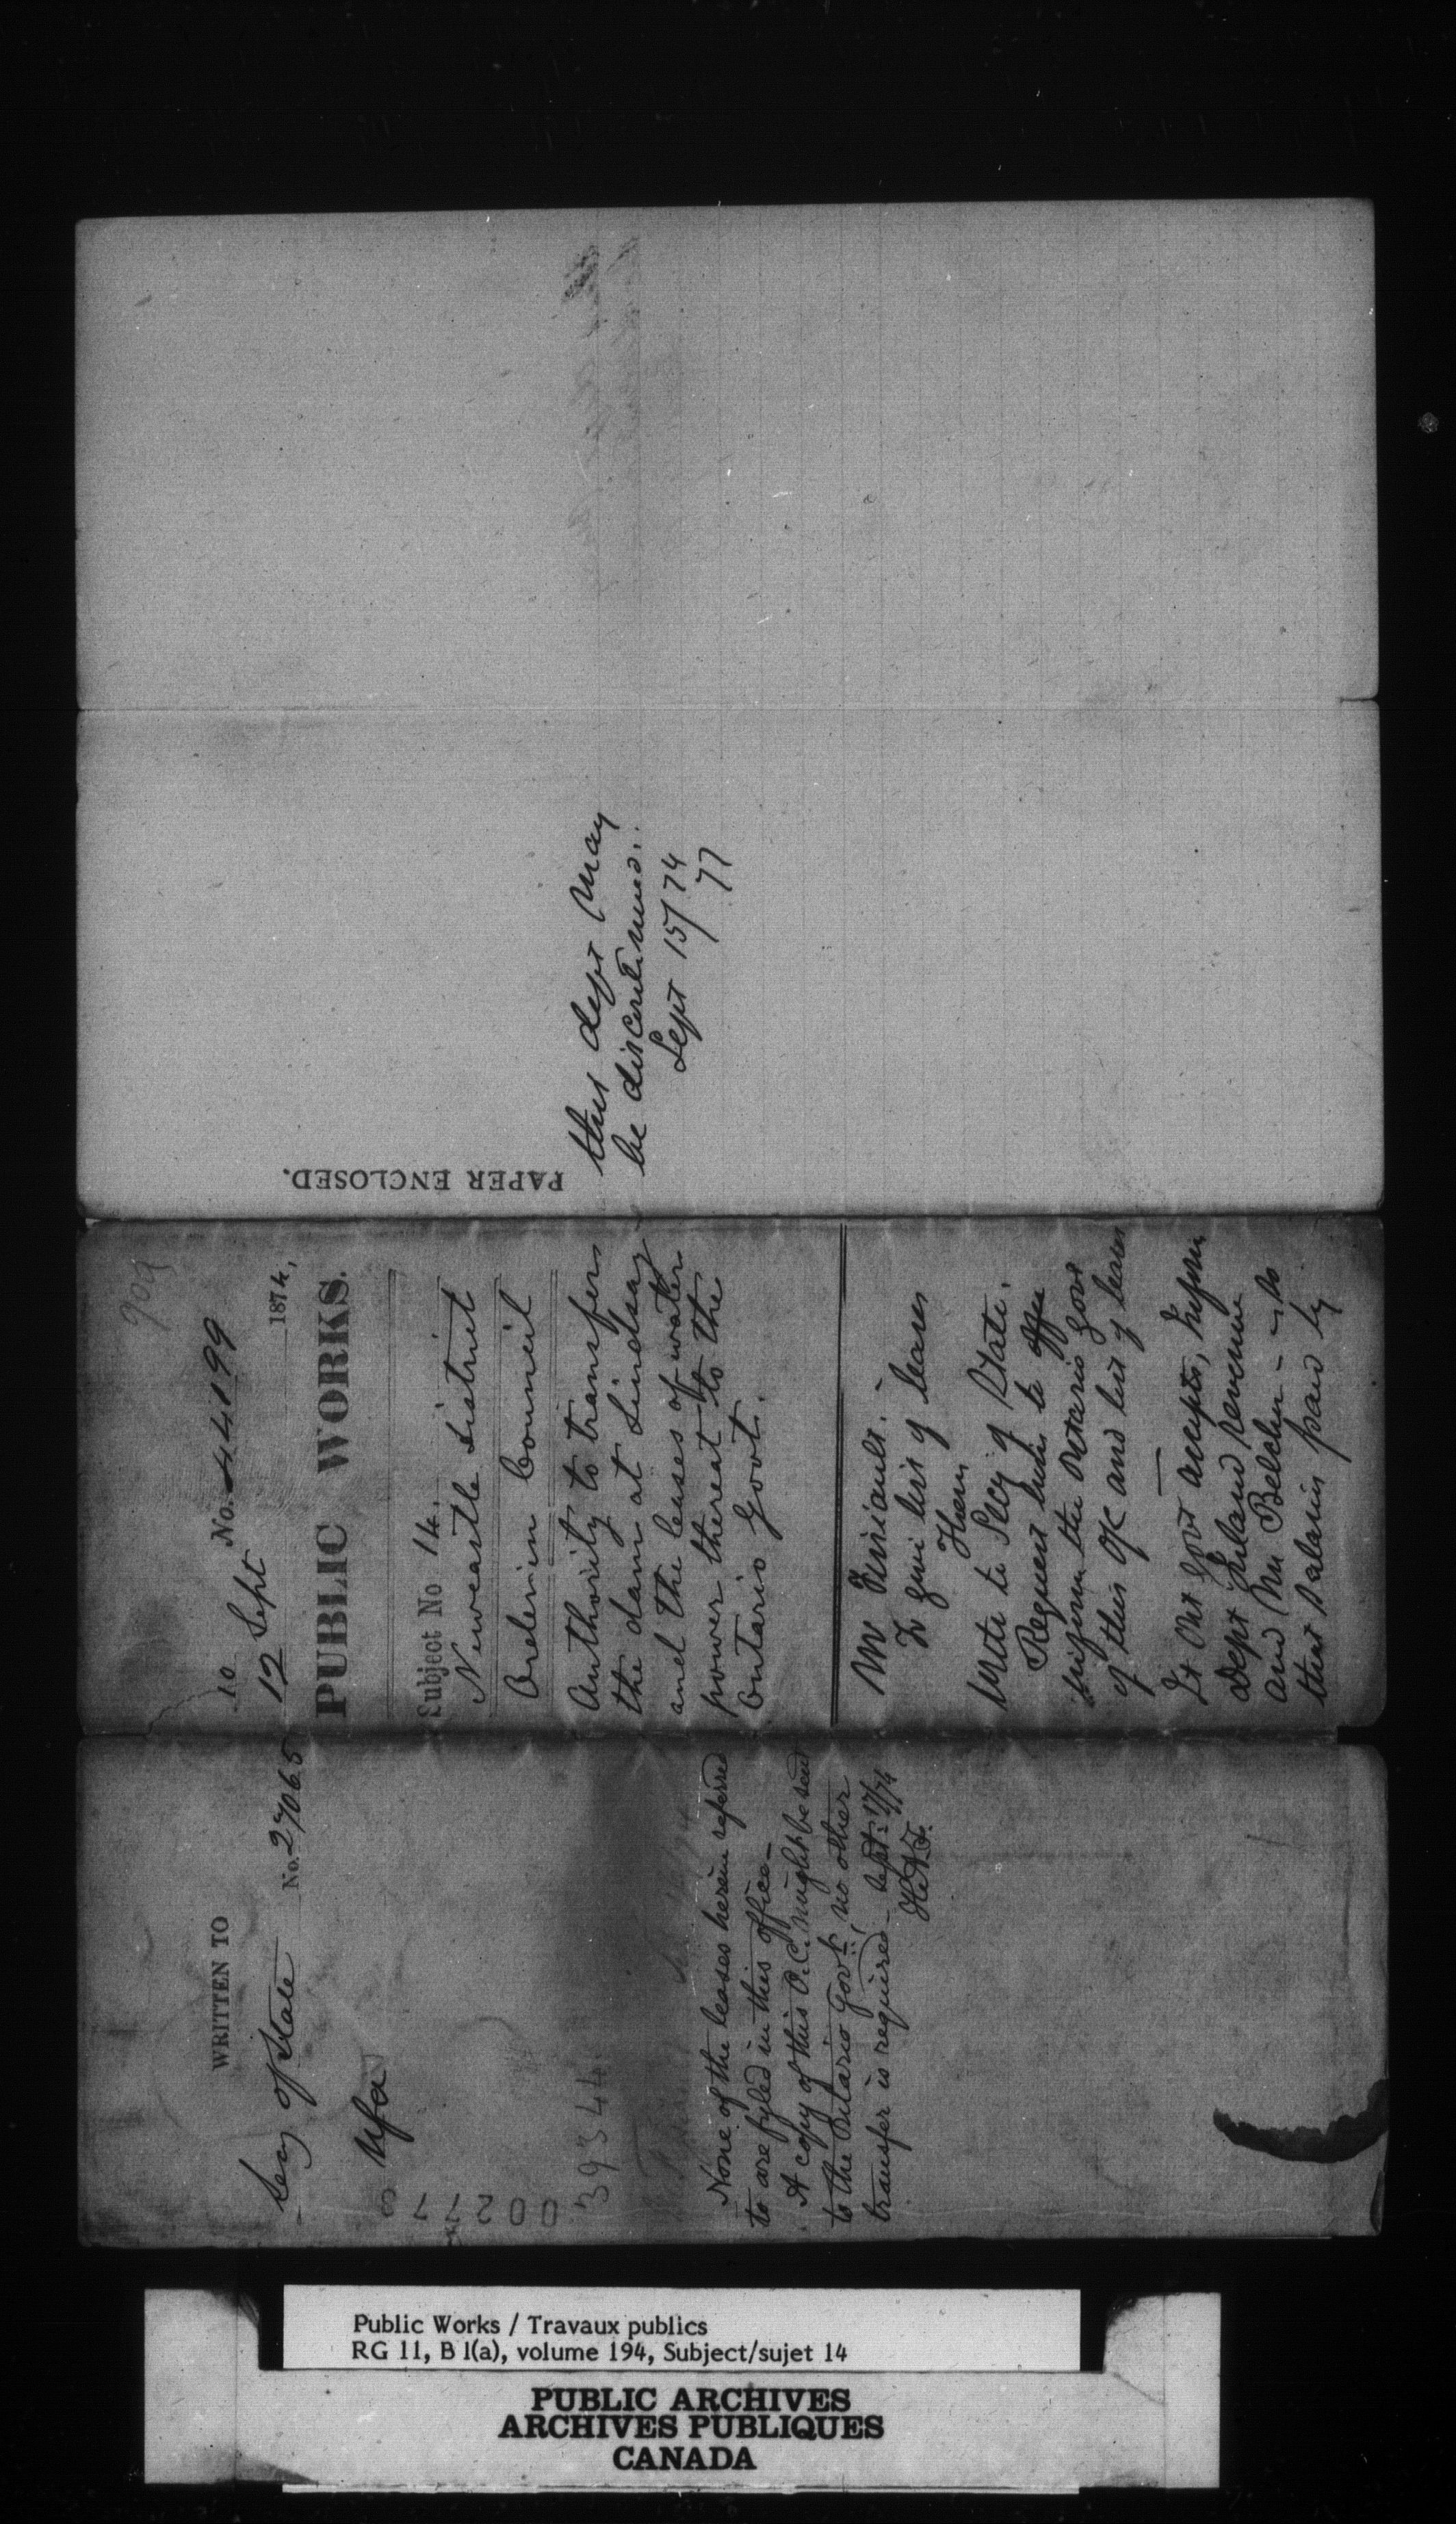 909
10 No. 44199
12 Sept 1874,
PUBLIC WORKS.
Subject No 14.
Newcastle district
Order in Council
Authority to transfer
the dam at Lindsay
and the leases of water
power thereat to the
Ontario Govt.
Mr
To give list of leases
Them
Write to Secy of State.
Request him to
inform the Ontario Govt
of this OC and list of leases
If Ont Govt accepts, inform
dept Inland revenue
and Mr Belcher
that salaries paid by
this dept may
be discontinued.
Sept 15/74
77
PAPER ENCLOSED.
WRITTEN TO
Secy of State No. 27065
Mfa
00277
39344
None of the leases herein referred
to are fyled in this office—
A copy of this O.C. might be sent
to the Ontario Govt, no other
transfer is required— Sept: 17/74
Public Works / Travaux publics
RG 11, B 1(a), volume 194, Subject/sujet 14
PUBLIC ARCHIVES
ARCHIVES PUBLIQUES
CANADA